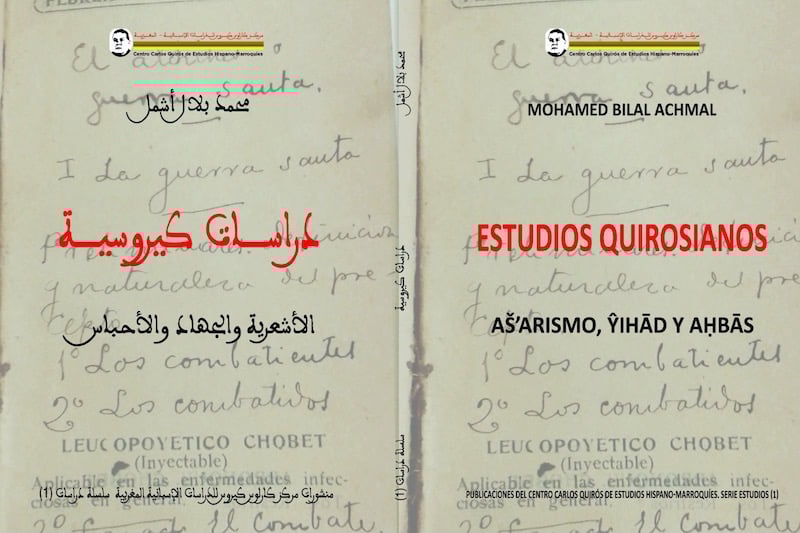 مركز كارلوس كيروس للدراسات الإسبانية - المغربية
Centro Carlos Quirós de Estudios Hispano-Marroquíes
El
guerra santa.
محمد بلال أشمل
I La guerra santa
دراسات كيروسية
Definicion
y naturaleza del pre-
الأشعرية والجهاد والأحباس
1º Los combatientes
2º Los combatidos
LEUCOPOYETICO CHOBET
(Inyectable)
Aplicable en las enfermedades infec-
ciosas en general.
منشورات مركز كارلوس كيروس للدراسات الإسبانية المغربية سلسلة دراسات (1)
El combate
محمد بلال أشمل
دراسات كيروسية
سلسلة دراسات (1)
مركز كارلوس كيروس للدراسات الإسبانية - المغربية
Centro Carlos Quirós de Estudios Hispano-Marroquíes
El
guerra santa.
MOHAMED BILAL ACHMAL
I La guerra santa
ESTUDIOS QUIROSIANOS
y naturaleza del pre
AŠ’ARISMO, ŶIHĀD Y AḤBĀS
1º Los combatientes
2º Los combatidos
LEUCOPOYETICO CHOBET
(Inyectable)
Aplicable en las enfermedades infec-
PUBLICACIONES DEL CENTRO CARLOS QUIRÓS DE ESTUDIOS HISPANO-MARROQUÍES. SERIE ESTUDIOS (1)
ciosas en general.
El combate